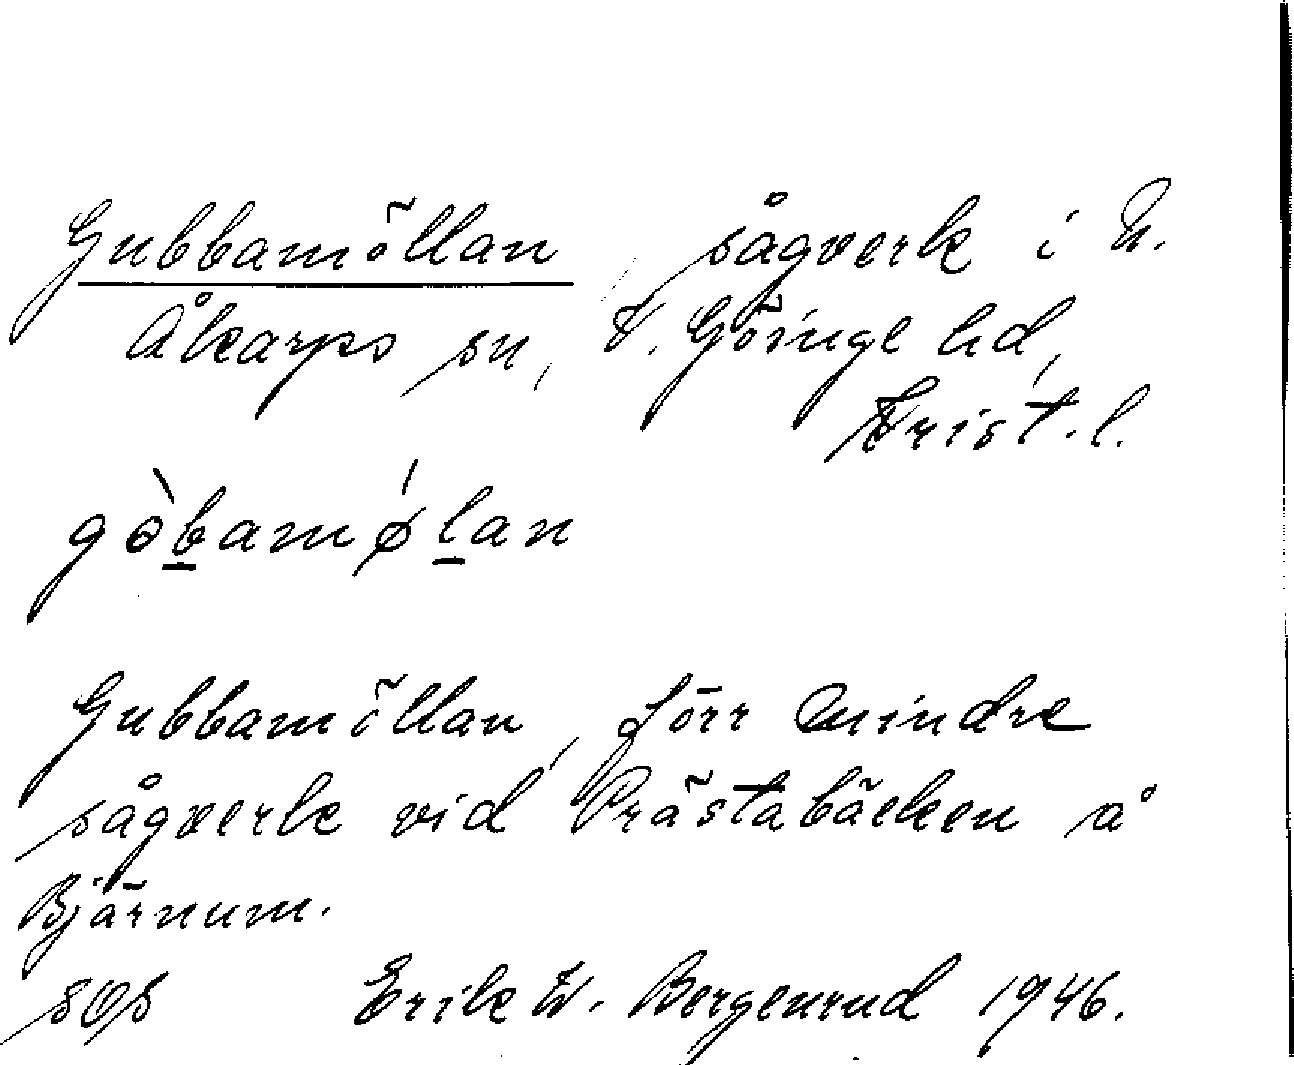 Gubbamöllan, sågverk i N.
Åkarps sn, V. Göinge hd,
Krist. l.
gòbamǿlan
Gubbamöllan, förr mindre
sågverk vid Prästabäcken å
Bjärnum.
Erik W. Bergenrud 1946.